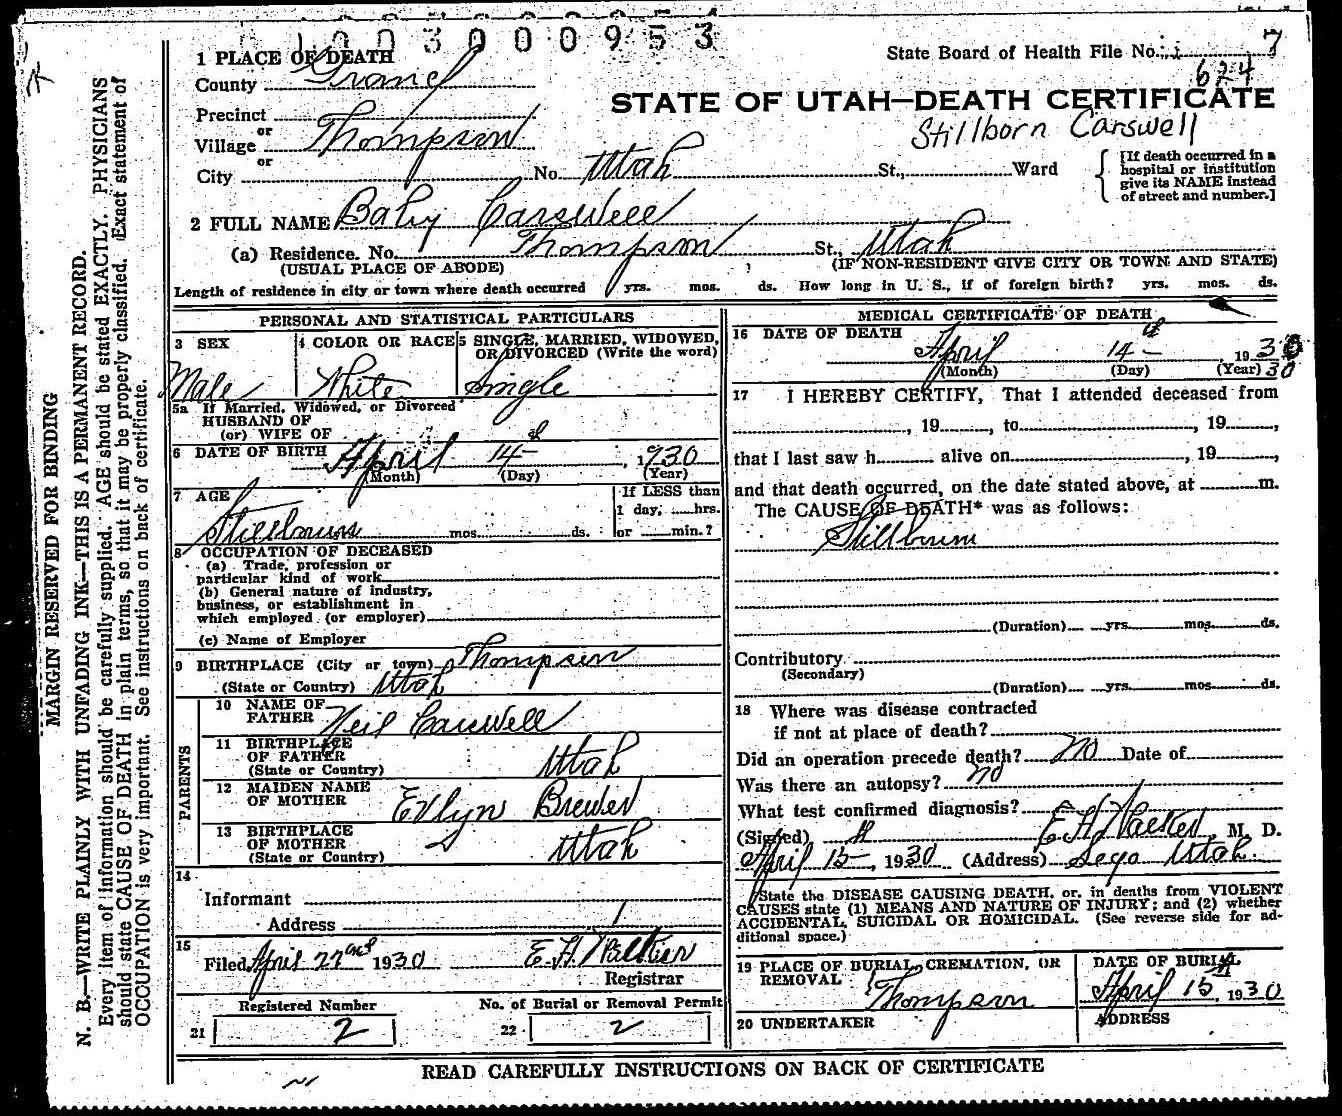 1003000953
State Board of Health File No. 7
624
STATE OF UTAH—DEATH CERTIFICATE
Stillborn Carswell
1 PLACE OF DEATH
County Grand
Precinct
or
Village Thompson
or
City No. Utah St., Ward
[If death occurred in a
hospital or institution
give its NAME instead
of street and number.]
2 FULL NAME Baby Carswell
(a) Residence. No. Thompson St., Utah
(USUAL PLACE OF ABODE) (IF NON-RESIDENT GIVE CITY OR TOWN AND STATE)
Length of residence in city or town where death occurred yrs. mos. ds. How long in U. S., if of foreign birth? yrs. mos. ds.
PERSONAL AND STATISTICAL PARTICULARS
3 SEX
Male
4 COLOR OR RACE
White
5 SINGLE, MARRIED, WIDOWED,
OR DIVORCED (Write the word)
Single
5a If Married, Widowed, or Divorced
HUSBAND OF
(or) WIFE OF
6 DATE OF BIRTH April 14 , 1930
(Month) (Day) (Year)
7 AGE
Stillbourn mos. ds.
If LESS than
1 day, hrs.
or min.?
8 OCCUPATION OF DECEASED
(a) Trade, profession or
particular kind of work
(b) General nature of industry,
business, or establishment in
which employed (or employer)
(c) Name of Employer
9 BIRTHPLACE (City or town) Thompson
(State or Country) Utah
PARENTS
10 NAME OF
FATHER Neil Carswell
11 BIRTHPLACE
OF FATHER
(State or Country) Utah
12 MAIDEN NAME
OF MOTHER Evlyn Brewer
13 BIRTHPLACE
OF MOTHER
(State or Country) Utah
14
Informant
Address
15
Filed April 22nd 1930 E. H. Walker
Registrar
Registered Number
21 2
No. of Burial or Removal Permit
22 2
MEDICAL CERTIFICATE OF DEATH
16 DATE OF DEATH
April 14 , 1930
(Month) (Day) (Year) 30
17 I HEREBY CERTIFY, That I attended deceased from
, 19 , to , 19 ,
that I last saw h alive on , 19 ,
and that death occurred, on the date stated above, at m.
The CAUSE OF DEATH* was as follows:
Stillbourn
(Duration) yrs. mos. ds.
Contributory
(Secondary)
(Duration) yrs. mos. ds.
18 Where was disease contracted
if not at place of death?
Did an operation precede death? no Date of
Was there an autopsy? no
What test confirmed diagnosis?
(Signed) E H Walker, M. D.
April 15, 1930 (Address) Sego Utah.
*State the DISEASE CAUSING DEATH, or, in deaths from VIOLENT
CAUSES state (1) MEANS AND NATURE OF INJURY; and (2) whether
ACCIDENTAL, SUICIDAL OR HOMICIDAL. (See reverse side for ad-
ditional space.)
19 PLACE OF BURIAL, CREMATION, OR
REMOVAL Thompson
DATE OF BURIAL
April 15, 1930
20 UNDERTAKER
ADDRESS
READ CAREFULLY INSTRUCTIONS ON BACK OF CERTIFICATE
MARGIN RESERVED FOR BINDING
N. B.—WRITE PLAINLY WITH UNFADING INK—THIS IS A PERMANENT RECORD.
Every item of information should be carefully supplied. AGE should be stated EXACTLY. PHYSICIANS
should state CAUSE OF DEATH in plain terms, so that it may be properly classified. Exact statement of
OCCUPATION is very important. See instructions on back of certificate.